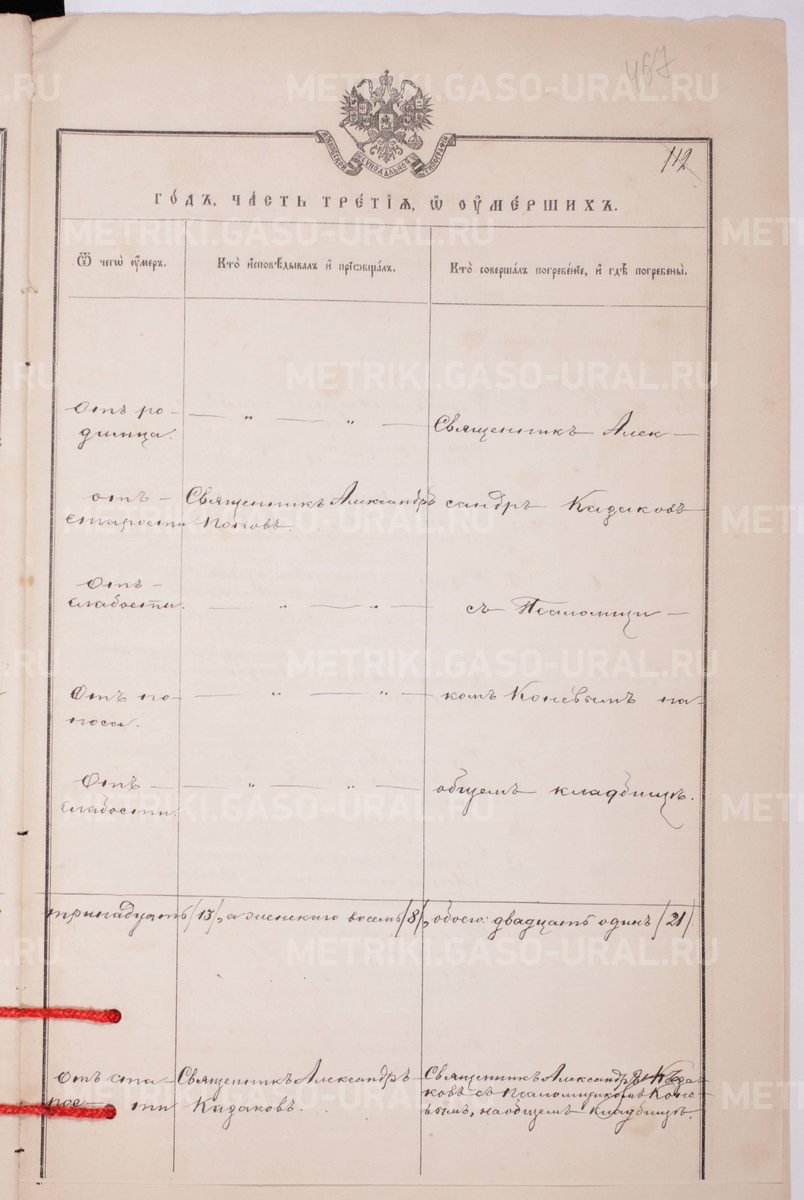 467
112
ГО́ДЪ, ЧА́СТЬ ТРЕ́ТІѦ, Ѡ ОУ҆МЕ́РШИХЪ.
Ѿ чегѡ̀ оу҆́меръ.
Кто̀ и҆сповѣ́дывалъ и҆ прїѡбща́лъ.
Кто̀ соверша́лъ погребе́нїе, и҆ гдѣ̀ погребены̀.
Отъ ро-
димца.
— „ — „ —
Священникъ Алек-
отъ
старости
Священникъ Александръ
Поповъ.
сандръ Кадаковъ
Отъ
слабости.
— „ — „ —
съ Псаломщи-
Отъ по-
носа.
— „ — „ —
комъ Коневымъ на
Отъ
слабости.
— „ — „ —
общемъ кладбищѣ.
тринадцать /13/, а женскаго восемь /8/, обоего: двадцать одинъ /21/
Отъ ста-
рос- ти
Священникъ Александръ
Кадаковъ.
Священникъ Александръ Када-
ковъ съ Псаломщикомъ Коне-
вымъ, на общемъ кладбищѣ.
METRIKI.GASO-URAL.RU